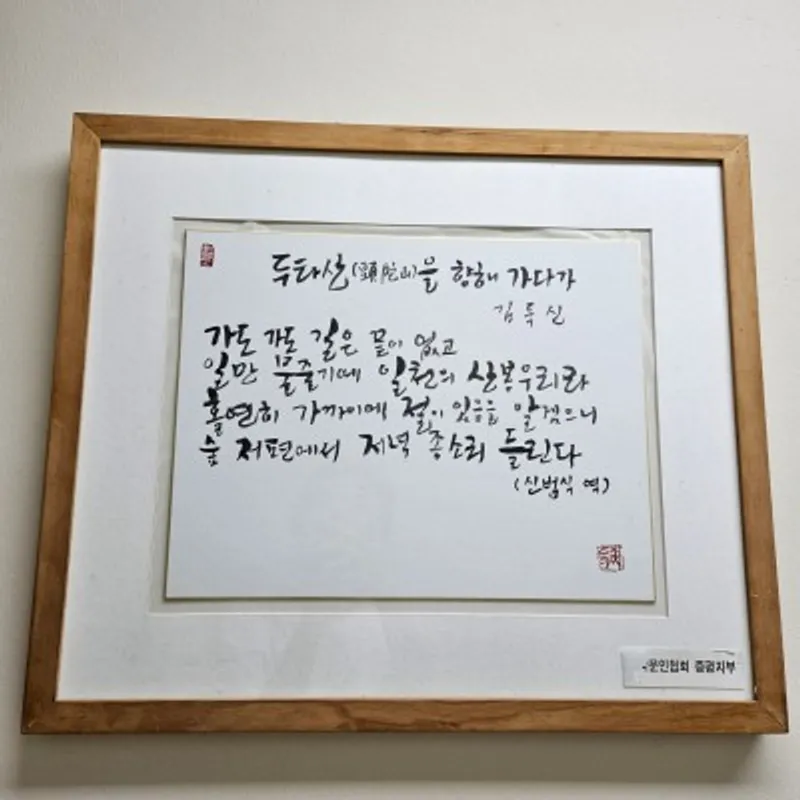 두타산(頭陀山)을 향해 가다가
김득신
가도 가도 길은 끝이 없고
일만 물줄기에 일천의 산봉우리라
홀연히 가까이에 절이 있음을 알겠으니
숲 저편에서 저녁 종소리 들린다
(신범식 역)
문인협회 증평지부